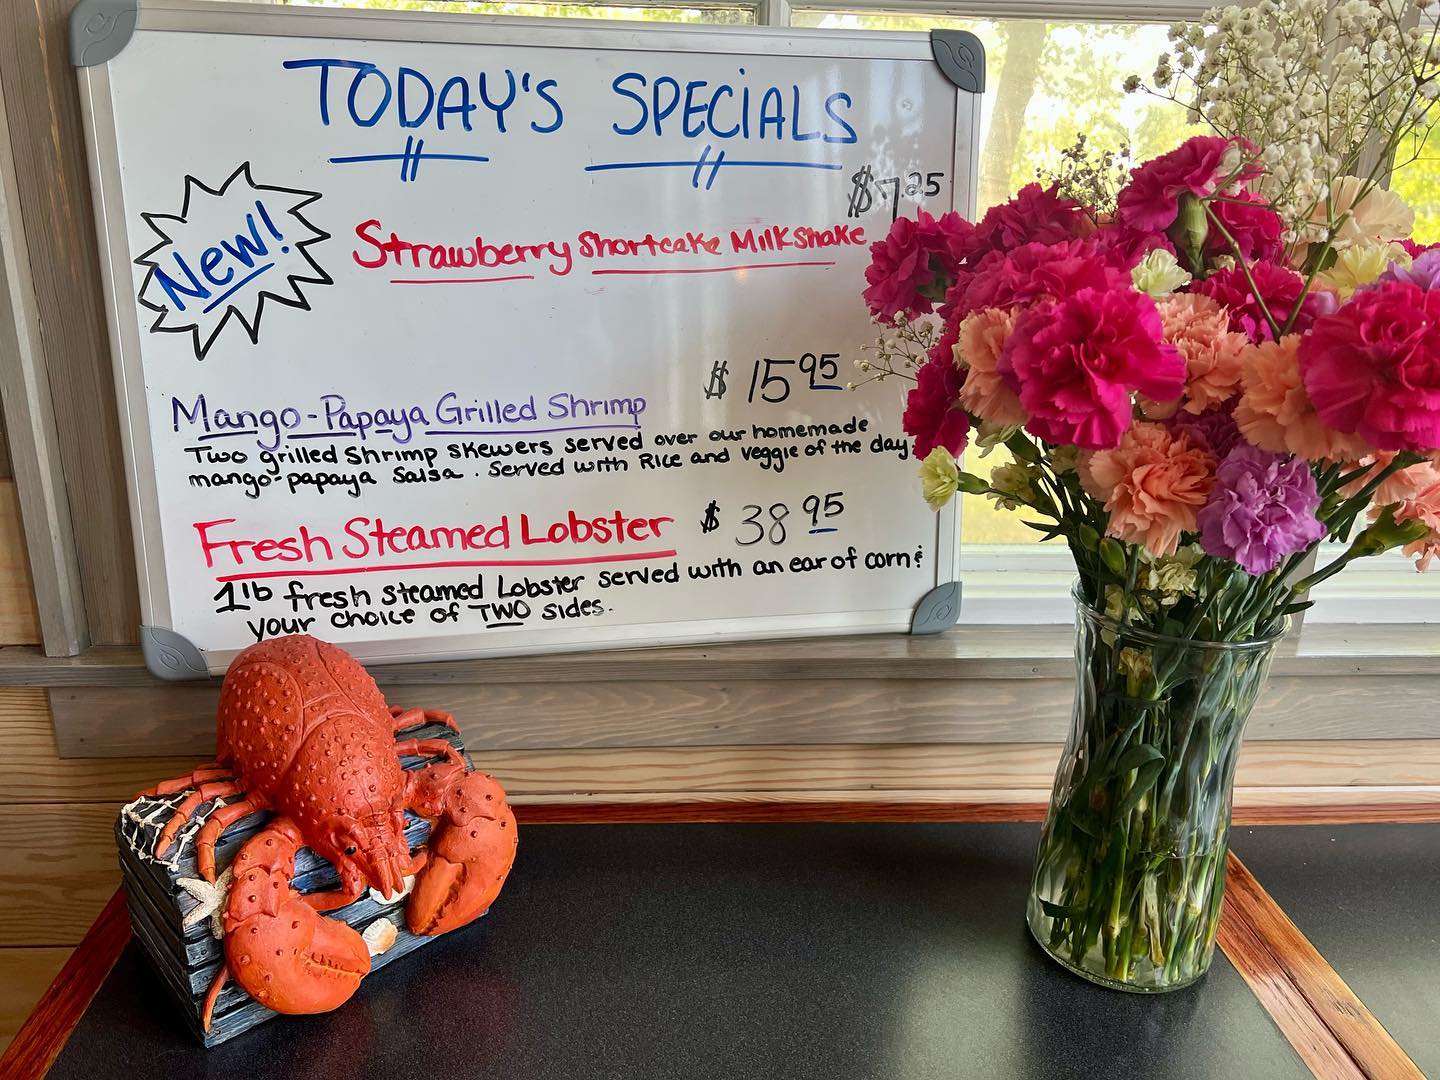 TODAY'S SPECIALS
$7.25
New!
Strawberry Shortcake Milkshake
$15.95
Mango-Papaya Grilled Shrimp
Two grilled shrimp skewers served over our homemade
mango-papaya salsa. Served with Rice and veggie of the day.
Fresh Steamed Lobster $38.95
1lb fresh steamed Lobster served with an ear of corn &
your choice of TWO sides.